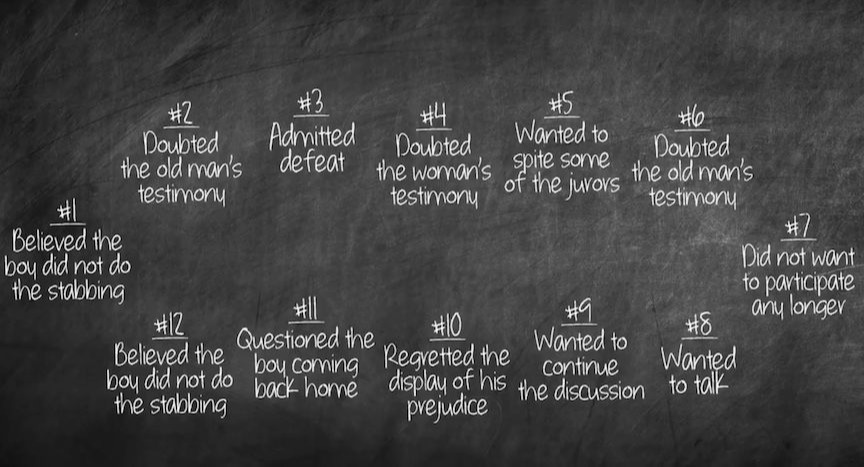 #1
Believed the
boy did not do
the stabbing
#2
Doubted
the old man's
testimony
#3
Admitted
defeat
#4
Doubted
the woman's
testimony
#5
Wanted to
spite some
of the jurors
#6
Doubted
the old man's
testimony
#7
Did not want
to participate
any longer
#12
Believed the
boy did not do
the stabbing
#11
Questioned the
boy coming
back home
#10
Regretted the
display of his
prejudice
#9
Wanted to
continue
the discussion
#8
Wanted
to talk